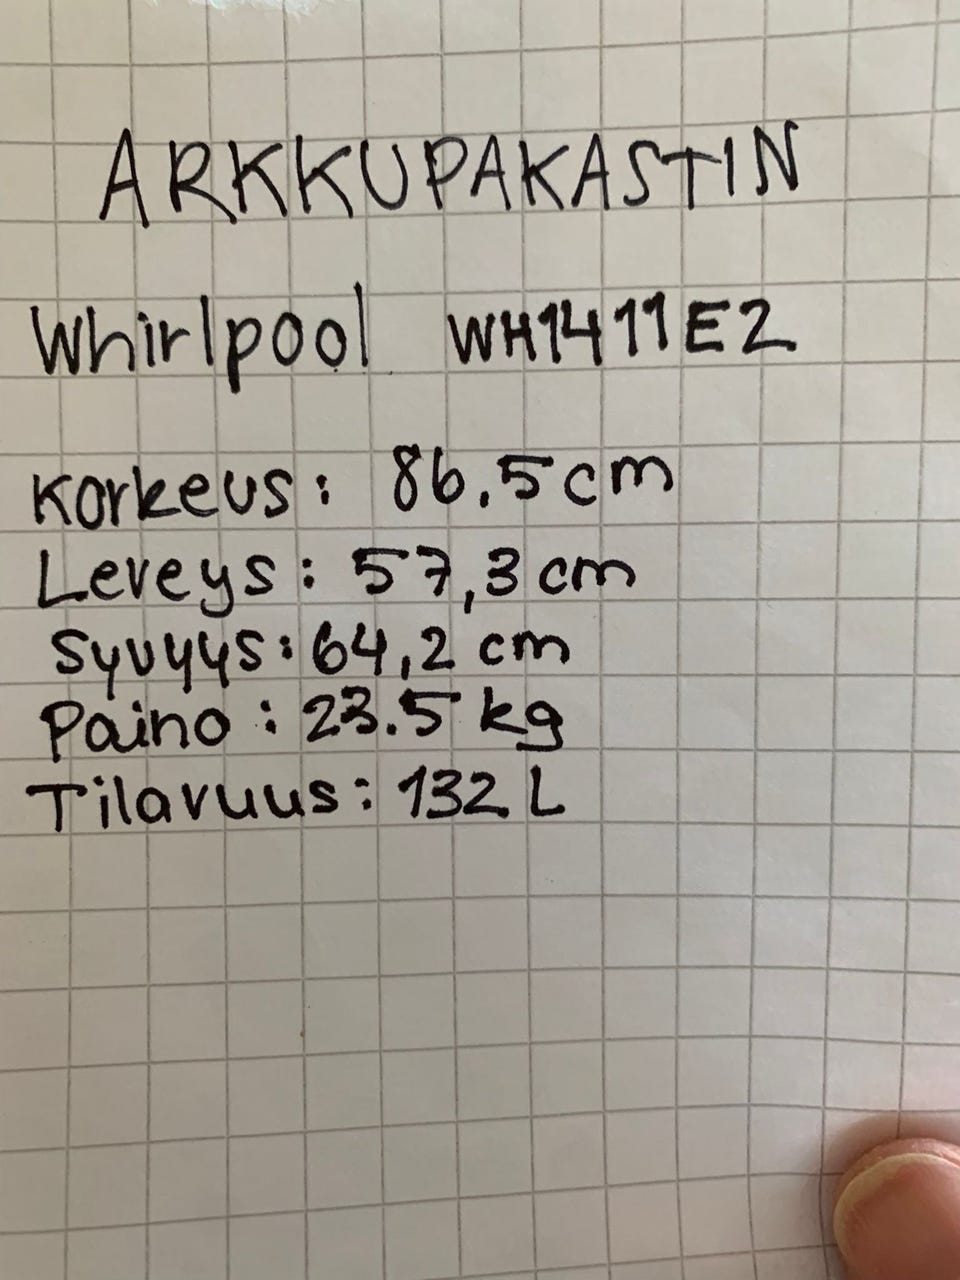 ARKKUPAKASTIN
Whirlpool WH1411E2
Korkeus: 86.5cm
Leveys: 57,3 cm
Syvyys: 64,2 cm
Paino: 23.5 kg
Tilavuus: 132 L